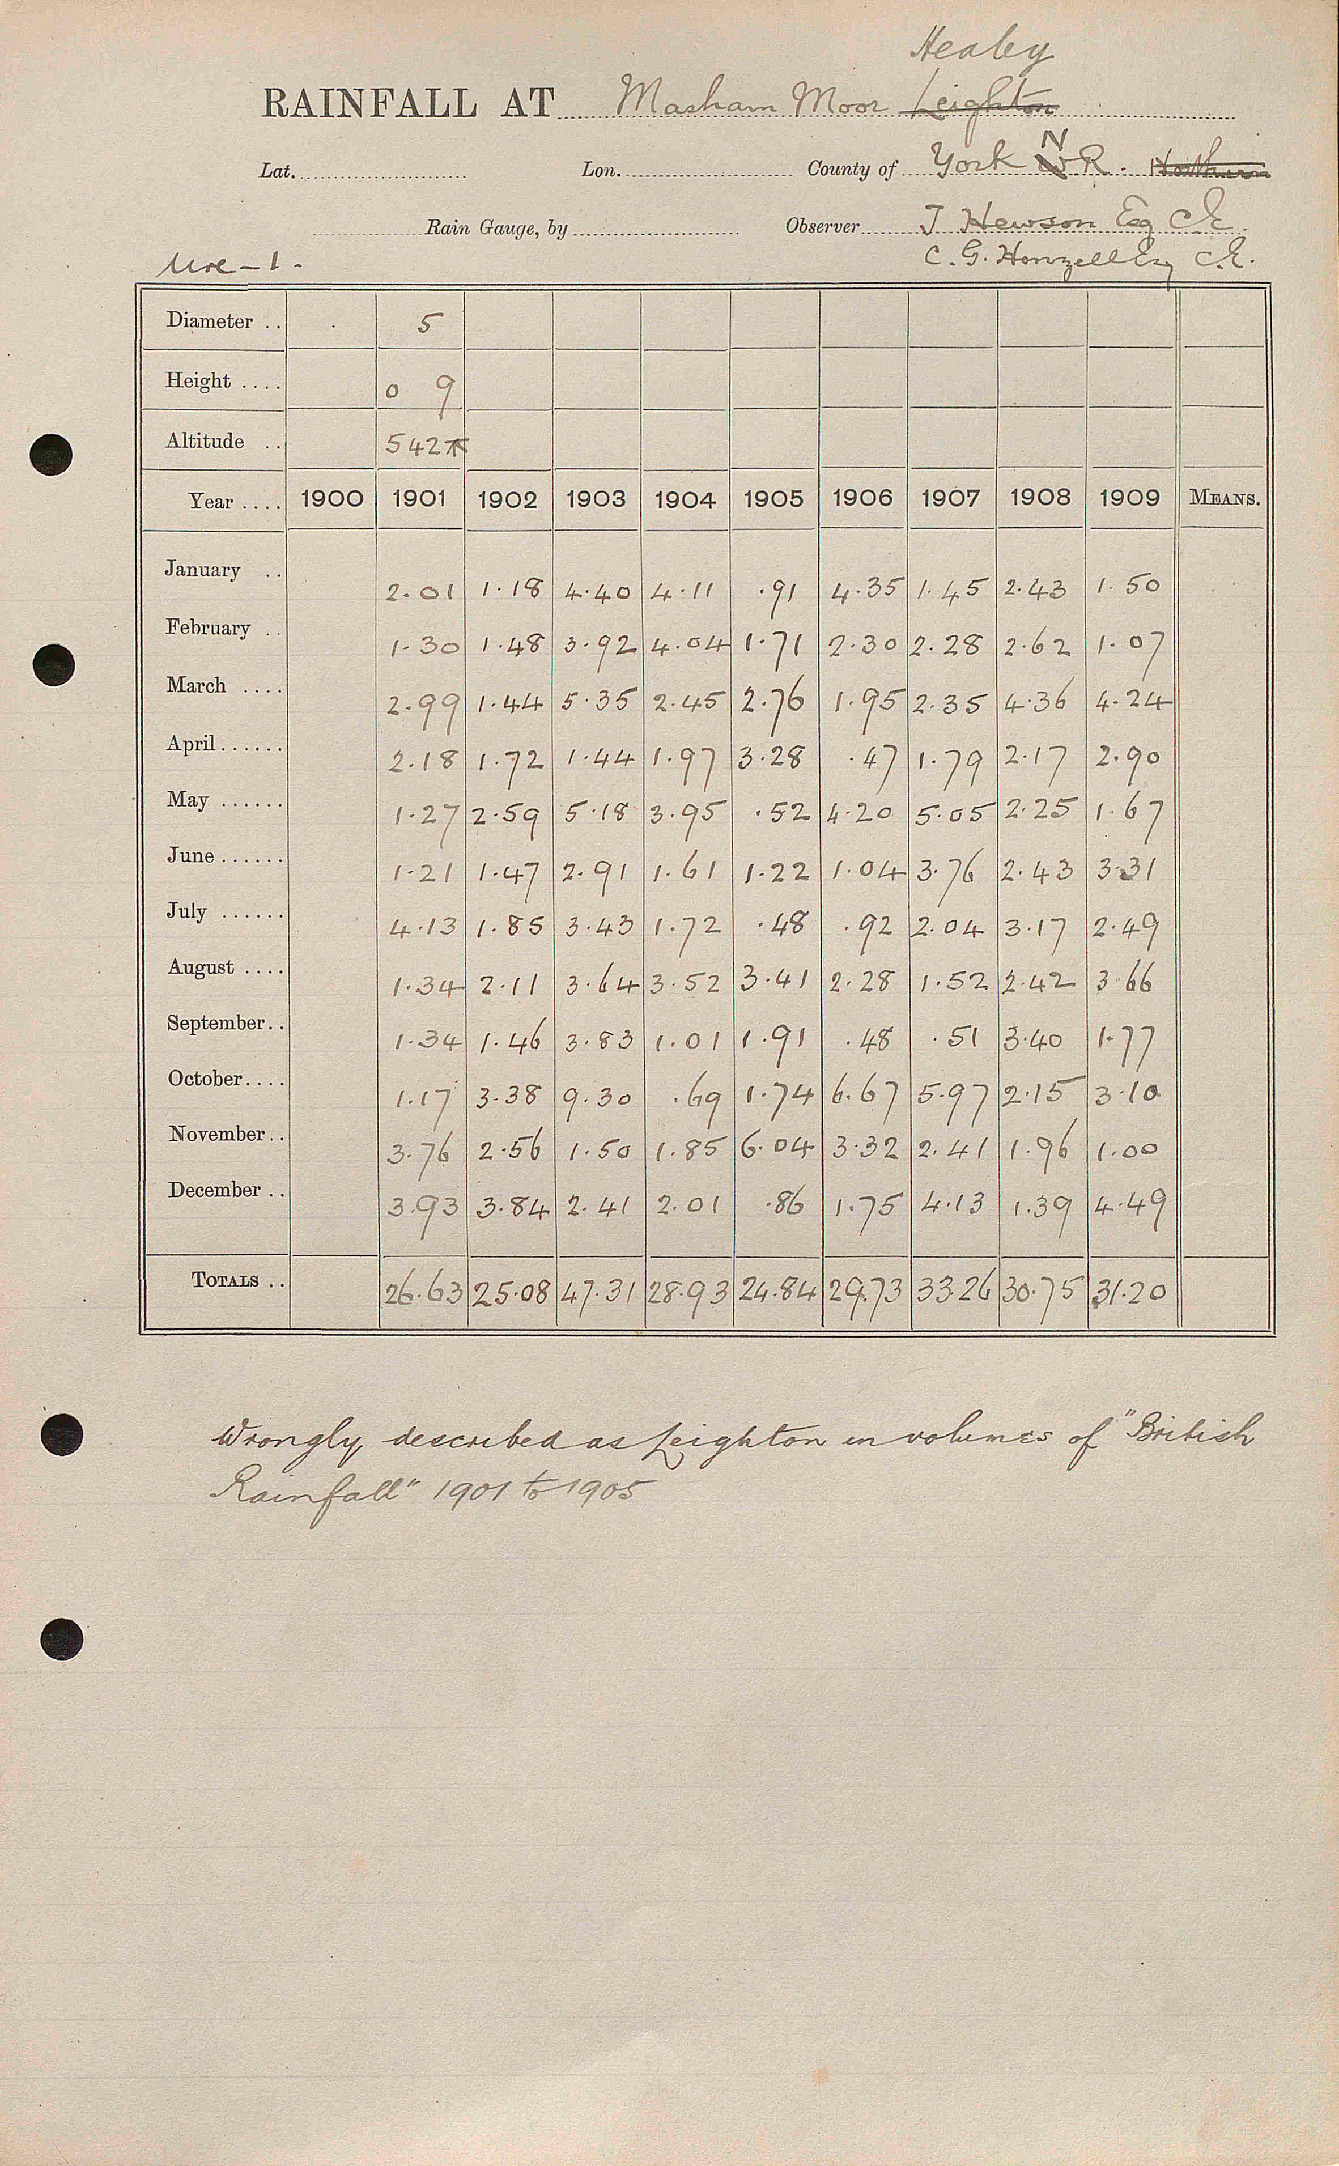 Healey
RAINFALL AT Masham Moor Leighton
Lat. Lon. County of York N R. Northern
Rain Gauge, by Observer J Hewson Esq C.E.
Ure - 1. C. G. Henzell Esq C.E.
Diameter .. 5
Height .... 0 9
Altitude .. 542
Year .... 1900 1901 1902 1903 1904 1905 1906 1907 1908 1909 MEANS.
January .. 2.01 1.18 4.40 4.11 .91 4.35 1.45 2.43 1.50
February .. 1.30 1.48 3.92 4.04 1.71 2.30 2.28 2.62 1.07
March .... 2.99 1.44 5.35 2.45 2.76 1.95 2.35 4.36 4.24
April...... 2.18 1.72 1.44 1.97 3.28 .47 1.79 2.17 2.90
May ...... 1.27 2.59 5.18 3.95 .52 4.20 5.05 2.25 1.67
June...... 1.21 1.47 2.91 1.61 1.22 1.04 3.76 2.43 3.31
July ...... 4.13 1.85 3.43 1.72 .48 .92 2.04 3.17 2.49
August .... 1.34 2.11 3.64 3.52 3.41 2.28 1.52 2.42 3.66
September.. 1.34 1.46 3.83 1.01 1.91 .48 .51 3.40 1.77
October.... 1.17 3.38 9.30 .69 1.74 6.67 5.97 2.15 3.10
November.. 3.76 2.56 1.50 1.85 6.04 3.32 2.41 1.96 1.00
December .. 3.93 3.84 2.41 2.01 .86 1.75 4.13 1.39 4.49
TOTALS .. 26.63 25.08 47.31 28.93 24.84 29.73 33.26 30.75 31.20
Wrongly described as Leighton in volumes of "British
Rainfall" 1901 to 1905